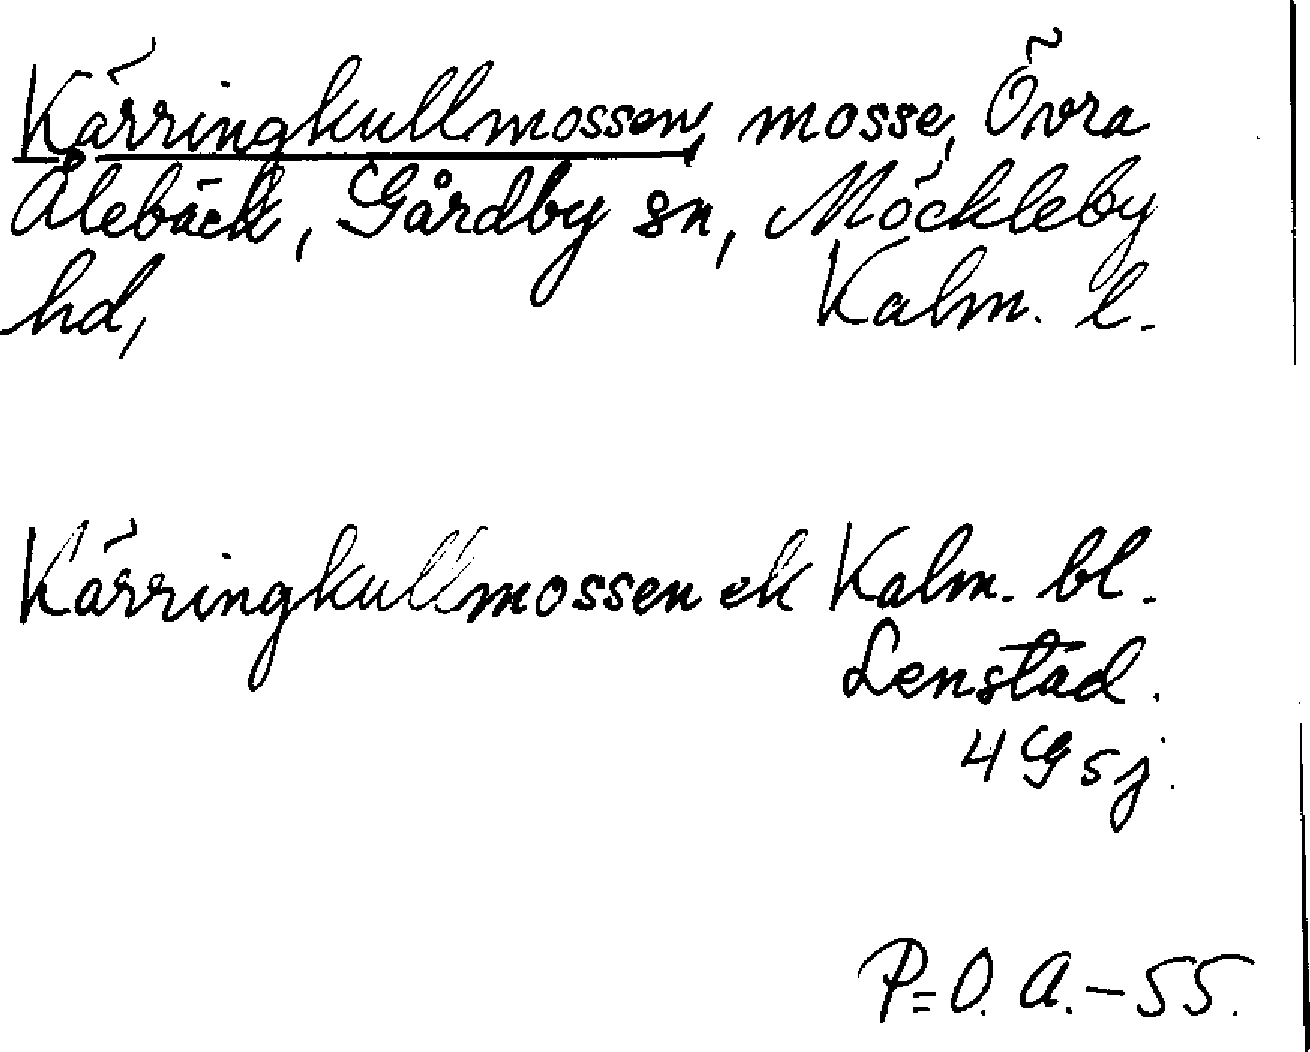 Kärringkullmossen, mosse, Övra
Ålebäck, Gårdby sn, Möckleby
hd, Kalm. l.
Kärringkullmossen ek Kalm. bl.
Lenstad.
4 G s j.
P=O. A.-55.